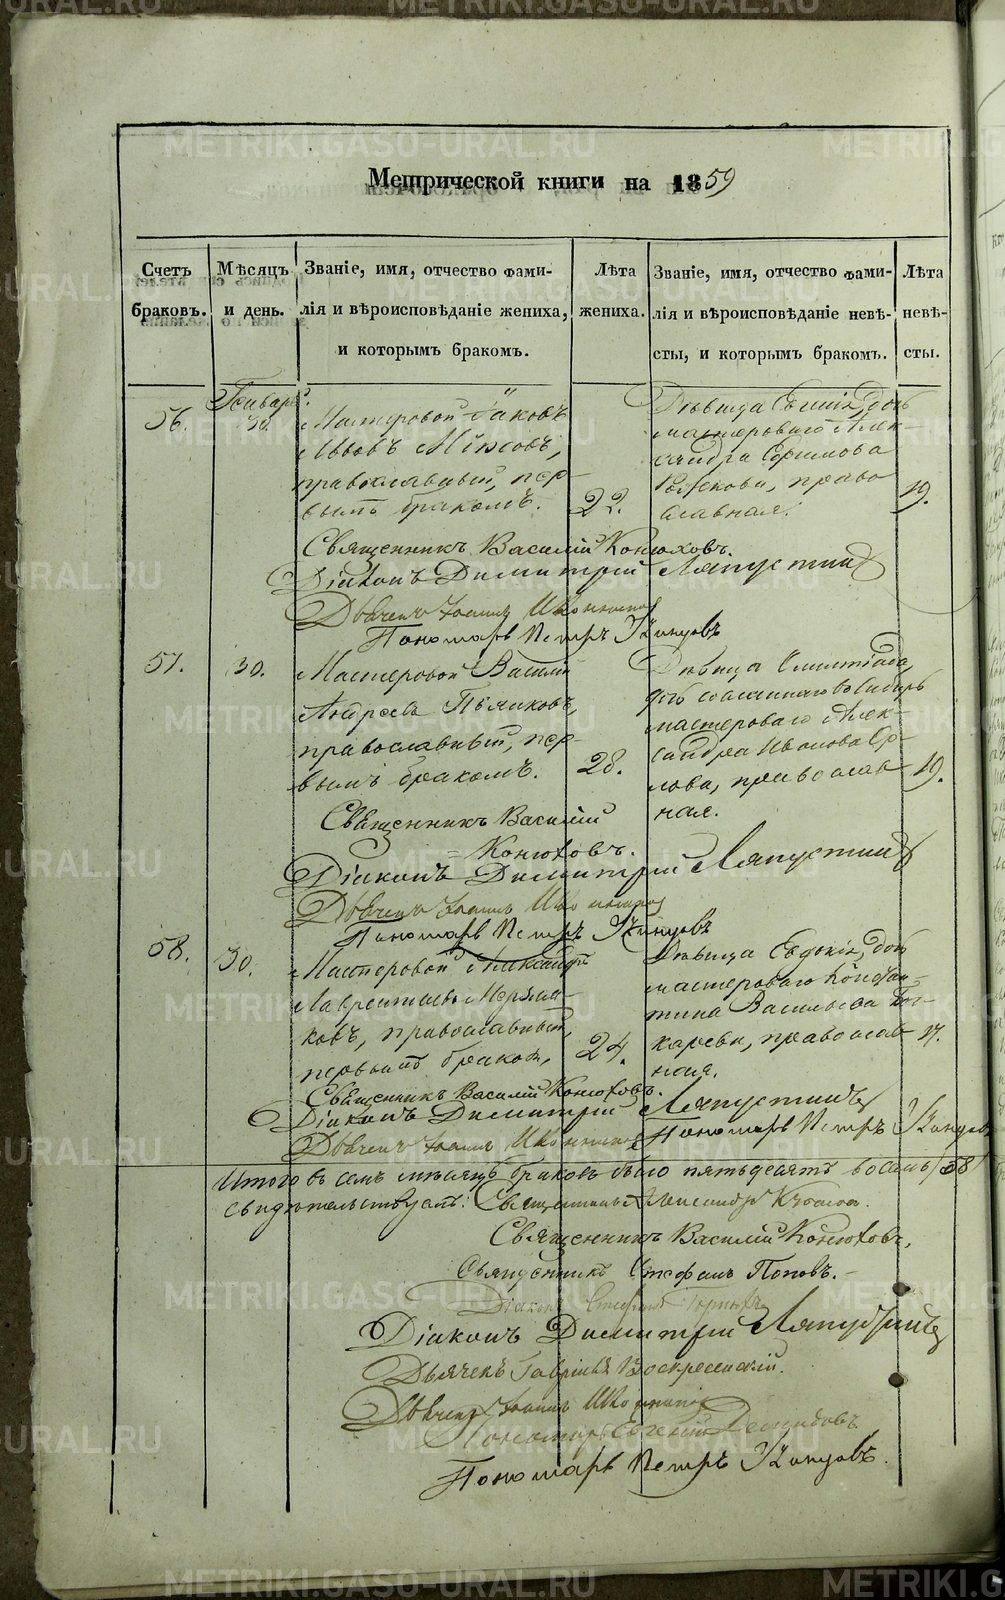 METRIKI.GASO-URAL.RU
Метрической книги на 1859
Счетъ браковъ.
Мѣсяцъ и день.
Званіе, имя, отчество фами-
лія и вѣроисповѣданіе жениха,
и которымъ бракомъ.
Лѣта
жениха.
Званіе, имя, отчество фами-
лія и вѣроисповѣданіе невѣ-
сты, и которымъ бракомъ.
Лѣта
невѣ-
сты.
56.
Генваря.
30.
Мастеровой Iаковъ
Львовъ
православный, пер-
вымъ бракомъ.
22.
Дѣвица Евгенія, дочь
мастероваго Алек-
сандра Ефимова
право
славная.
19.
Священникъ Василій Конюховъ.
Діаконъ Димитрій Ляпустинъ
Дьячекъ Iоаннъ
Пономарь Петръ
57.
30.
Мастеровой Василій
Андреевъ Пьянковъ,
православный, пер-
вымъ бракомъ.
28.
Дѣвица Олимпіада,
дочь сосланнаго въ Сибирь
мастероваго Алек-
сандра Иванова Ор-
лова, православ
ная.
19.
Священникъ Василій
Конюховъ.
Діаконъ Димитрій Ляпустинъ
Дьячекъ Iоаннъ
Пономарь Петръ
58.
30.
Мастеровой Александръ
Лаврентьевъ Мерзля-
ковъ, православный,
первымъ бракомъ,
24.
Дѣвица Евдокія, дочь
мастероваго Констан-
тина Васильева
карева, православ
ная.
17.
Священникъ Василій Конюховъ.
Діаконъ Димитрій Ляпустинъ
Дьячекъ Iоаннъ
Пономарь Петръ
Итого въ семъ мѣсяцѣ браковъ было пятьдесятъ восемь /58/
свидѣтельствуютъ: Священникъ Александръ
Священникъ Василій Конюховъ,
Священникъ Стефанъ Поповъ.
Діаконъ
Діаконъ Димитрій Ляпустинъ
Дьячекъ Гавріилъ Воскресенскій.
Дьячекъ Iоаннъ
Пономарь Евгеній Демидовъ
Пономарь Петръ